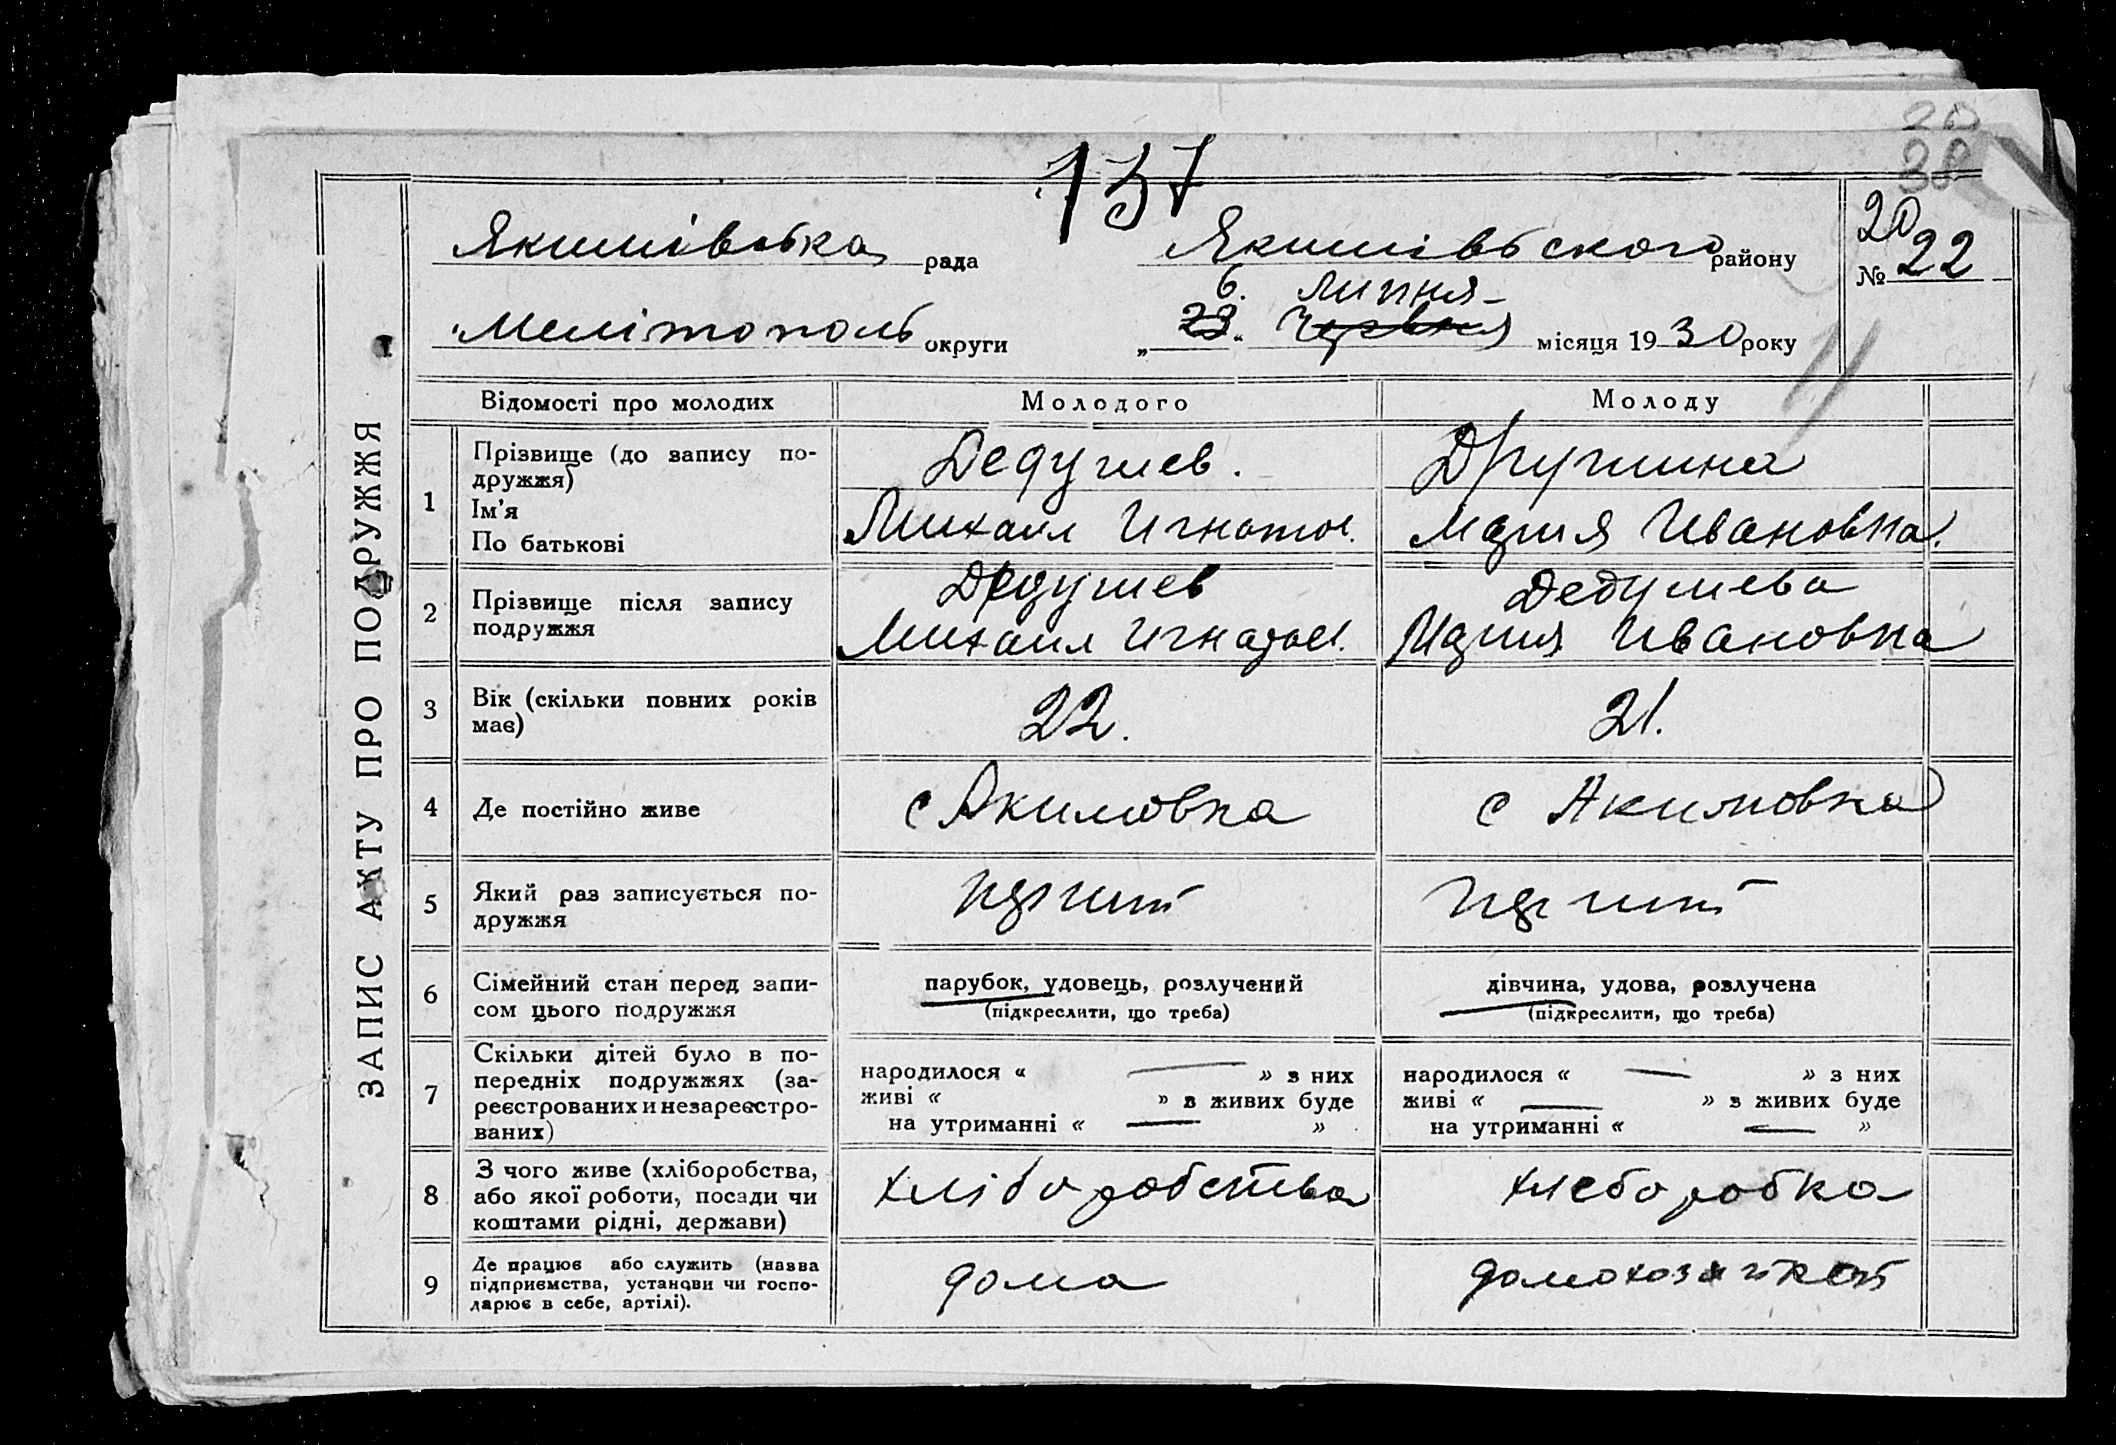 38
137
20
Якимівська рада Якимівського району № 22
6. Липня
Мелітополь округи „ 23 “ Червня місяця 19 30 року
11
ЗАПИС АКТУ ПРО ПОДРУЖЖЯ
Відомості про молодих Молодого Молоду
1 Прізвище (до запису по-
дружжя)
Ім'я
По батькові
Дедушев.
Михаил Игнатов.
Мария Ивановна.
2 Прізвище після запису
подружжя
Дедушев
Михаил Игнатов.
Дедушева
Мария Ивановна
3 Вік (скільки повних років
має)
22.
21.
4 Де постійно живе
с Акимовка
с Акимовка
5 Який раз записується по-
дружжя
6 Сімейний стан перед запи-
сом цього подружжя
парубок, удовець, розлучений
(підкреслити, що треба)
дівчина, удова, розлучена
(підкреслити, що треба)
7 Скільки дітей було в по-
передніх подружжях (за-
реєстрованих и незареєстро-
ваних)
народилося « — » з них
живі « » з живих буде
на утриманні « — »
народилося « — » з них
живі « — » з живих буде
на утриманні « — »
8 З чого живе (хліборобства,
або якої роботи, посади чи
коштами рідні, держави)
хліборобства
хлеборобка
9 Де працює або служить (назва
підприємства, установи чи госпо-
дарює в себе, артілі).
дома